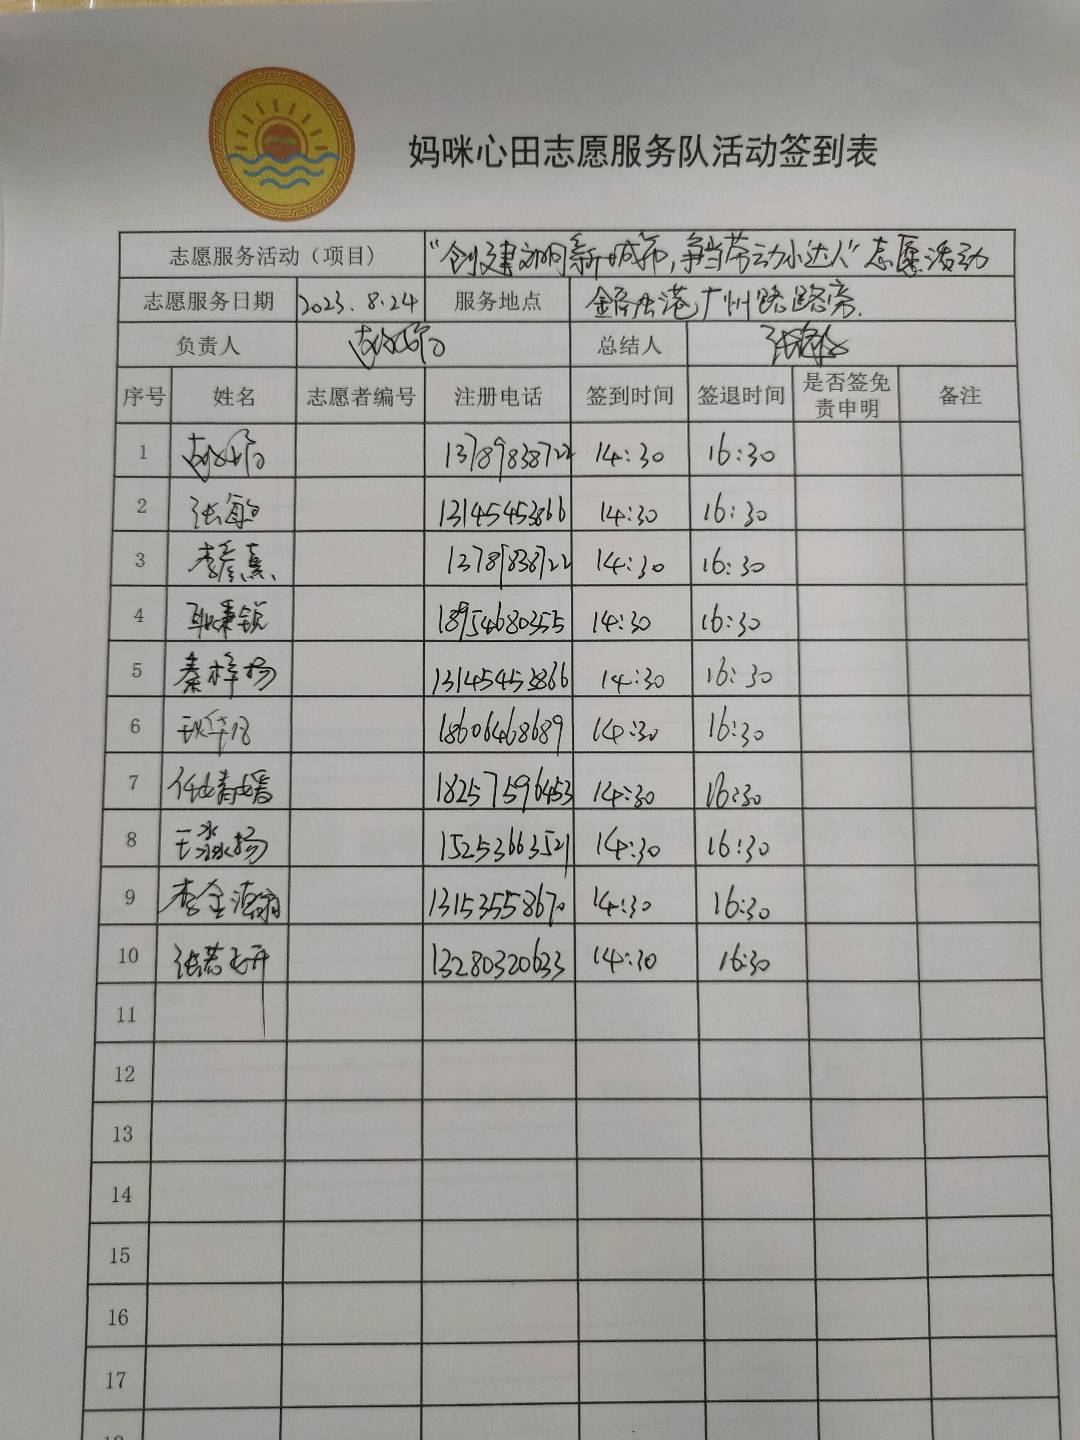 妈咪心田志愿服务队活动签到表
志愿服务活动（项目） “创建文明新城市，争当劳动小达人”志愿活动
志愿服务日期 2023.8.24 服务地点 港广州路路旁.
负责人 总结人
序号 姓名 志愿者编号 注册电话 签到时间 签退时间 是否签免责申明 备注
1 13789838722 14:30 16:30
2 张海 13145453866 14:30 16:30
3 李 熹 13789838722 14:30 16:30
4 耿秉锐 18954680355 14:30 16:30
5 秦梓扬 13145453866 14:30 16:30
6 18606468689 14:30 16:30
7 任婧媛 18257596453 14:30 16:30
8 王淼扬 15253663521 14:30 16:30
9 李金 13153558670 14:30 16:30
10 张若 13280320633 14:30 16:30
11
12
13
14
15
16
17